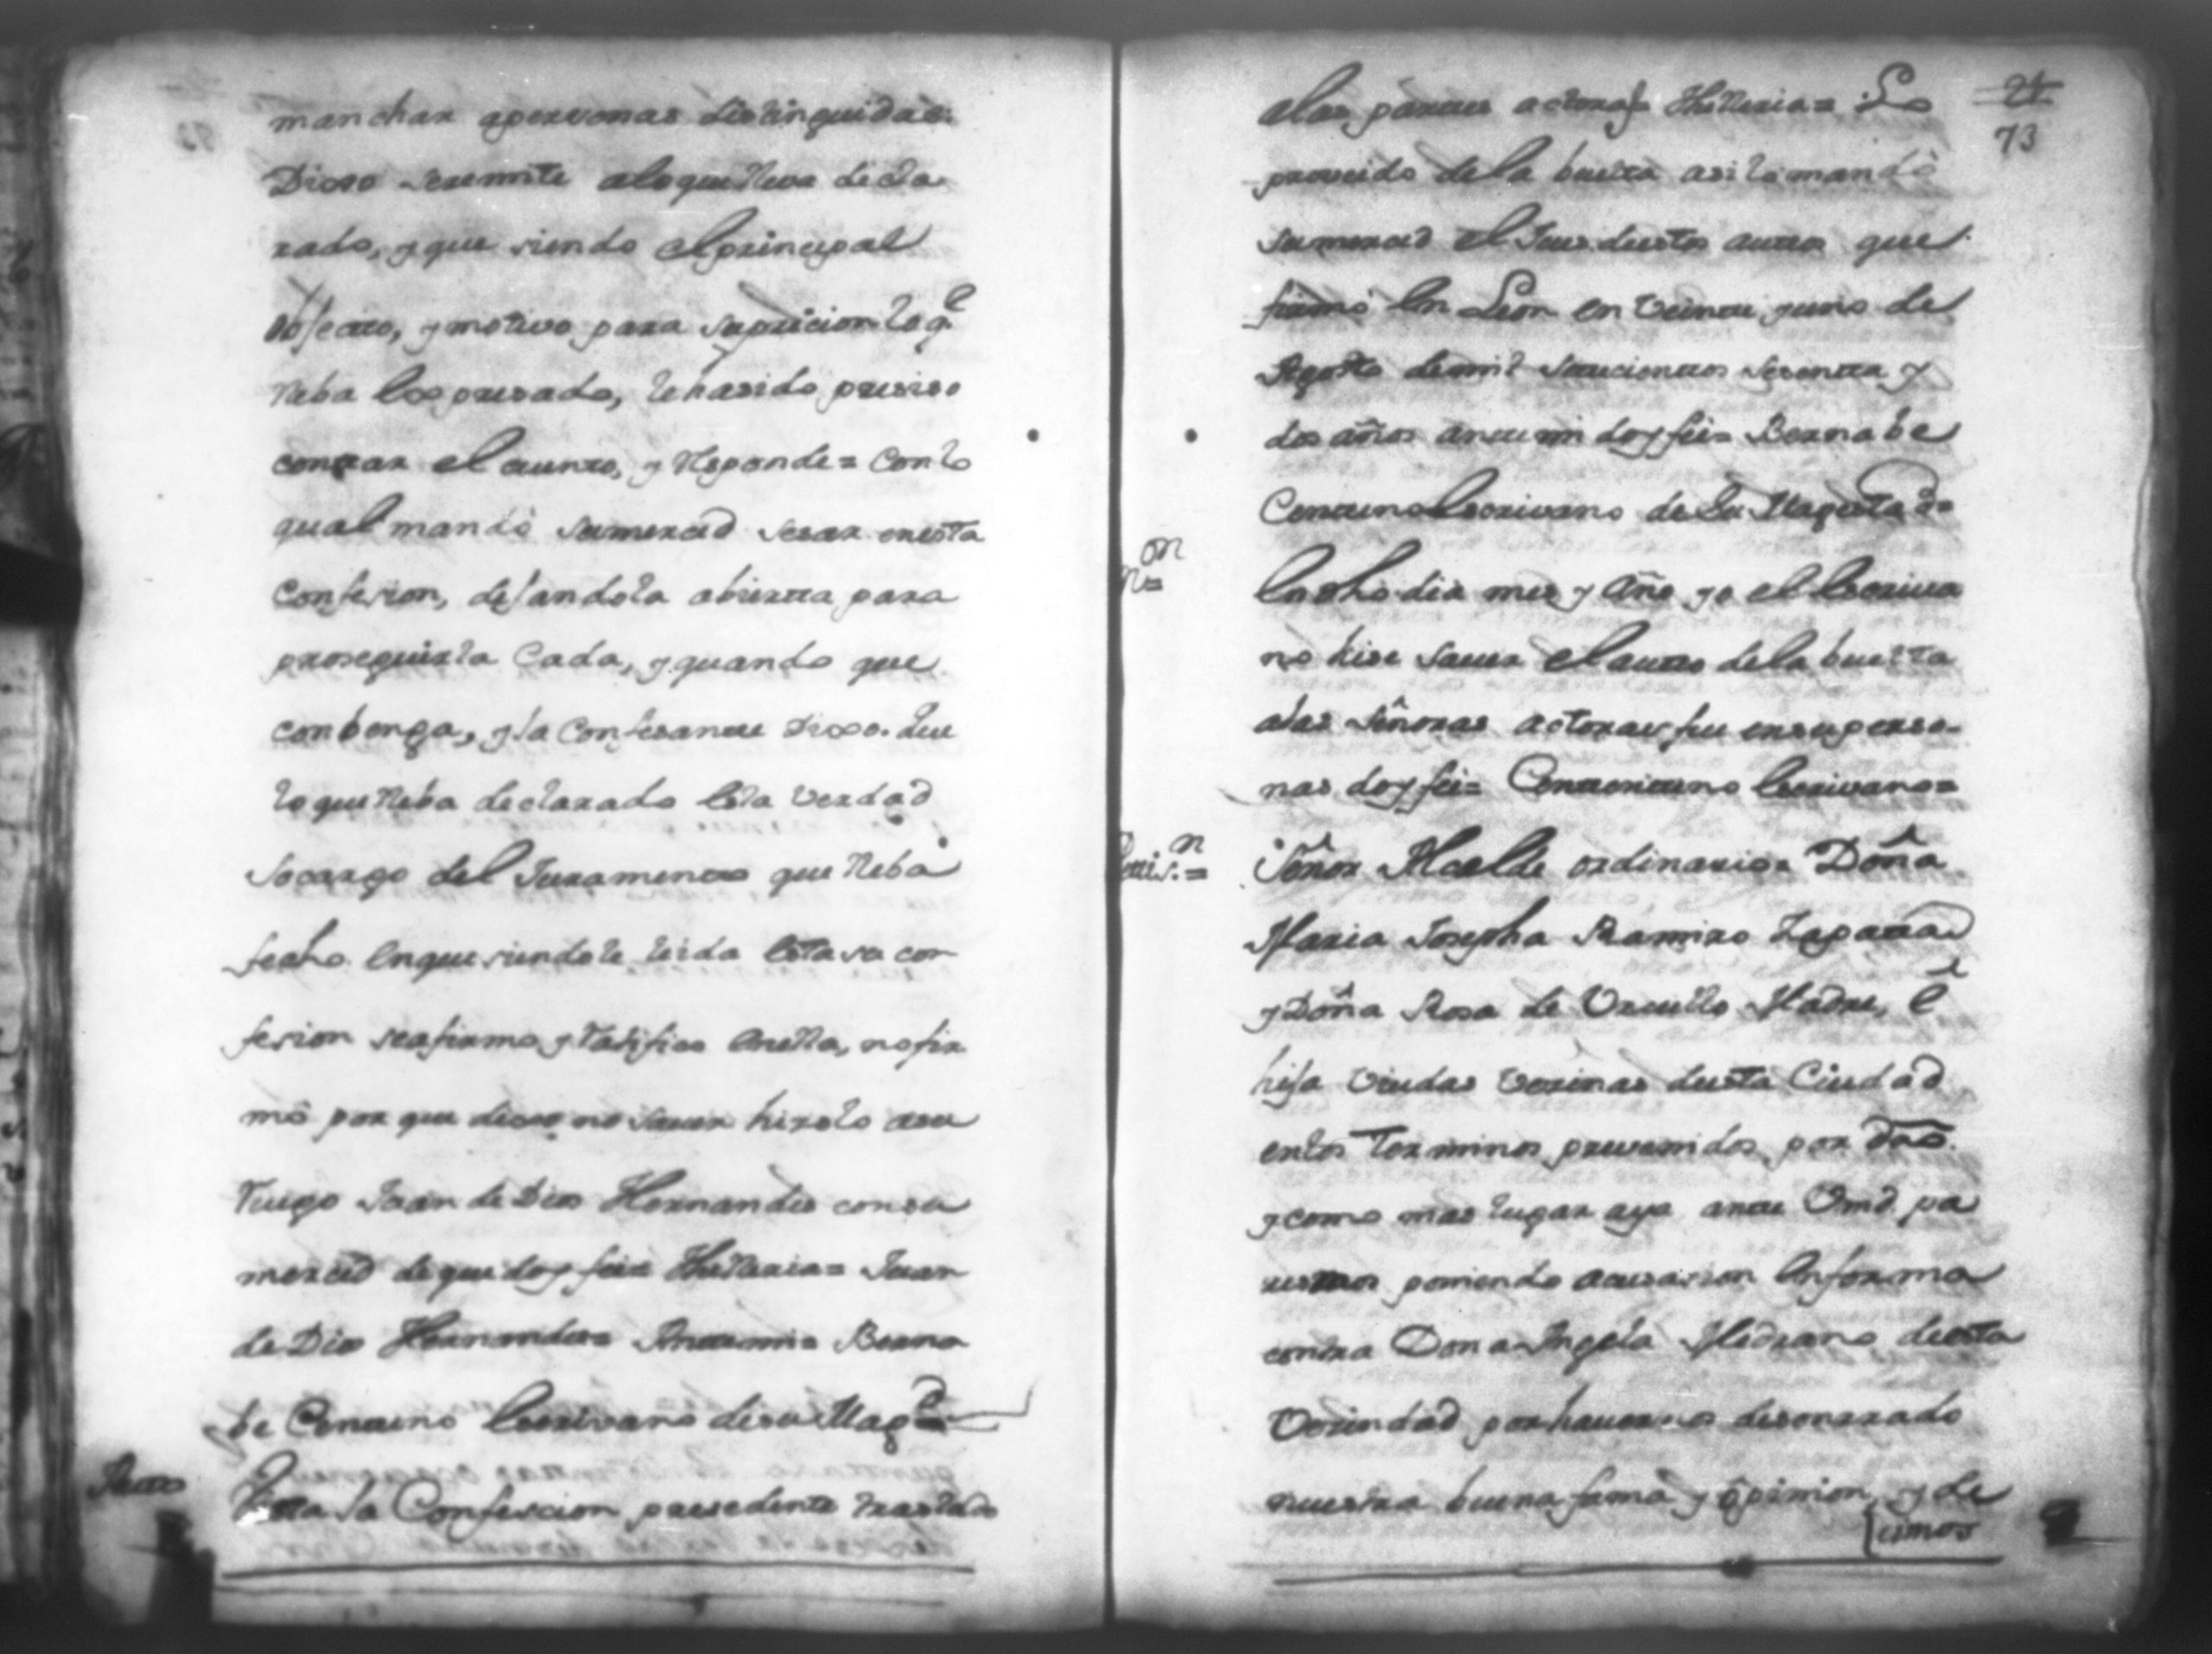 manchar apersonas distinguidas:
Dixo seremite aloque lleva decla
rado, y que siendo el principal
obJecto, y motivo para supricion lo q.e
lleba Expresado, le hasido presiso
contar el cuento, y Responde= Con lo
qual mandò sumerced sesar enesta
Confesion, deJandola abierta para
proseguirla Cada, y quando que
combenga, y la Confesante Dixo. Que
lo que lleba declarado Es la Verdad
socargo del Juramento que lleba
fecho Enque siendole leida Esta su con
fesion seafirmo y Ratifico Enella, nofir
mò por que dixo no saver hizolo asu
Ruego Juan de Dios Hernandes con su
merced de que doy feé= Hutteria= Juan
de Dios Hernandes= Antemi= Berna
be Centeno Escrivano de su Mag.d=
Autto
Vista la Confescion presedente traslado
24
73
alas partes actoras= Hutteria= Lo
proveido dela buelta asi lo mandò
sumerced el Jues destos autos que
firmò En Leon en Veinte, y uno de
Agosto demil Setecientos Sesenta y
dos años antemi doy feé= Bernabe
Centeno Escrivano de Su Magestad=
n.on=
En dho dia mes y Año yo el Escriva
no hise saver el auto dela buelta
alas Señoras actoras en sus perso-
nas doy feé= Centeno Escrivano=
Petis.n=
Señor Alcalde ordinario= Doña
Maria Josepha Ramiro Zapata
y Doña Rosa de Urcullo Madre, é
hiJa Viudas Vezinas desta Ciudad
enlos Terminos prevenidos por dro.
y como mas lugar aya ante Vmd. pa
resemos poniendo acusasion Enforma
contra Dona Angela Medrano deesta
Vesindad por havernos desonrrado
nuestra buena fama y ôpinion y de
cimos